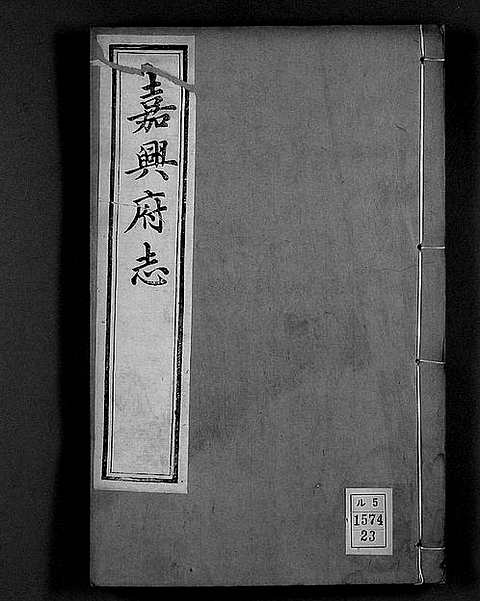 嘉興府志
ル 5
1574
23